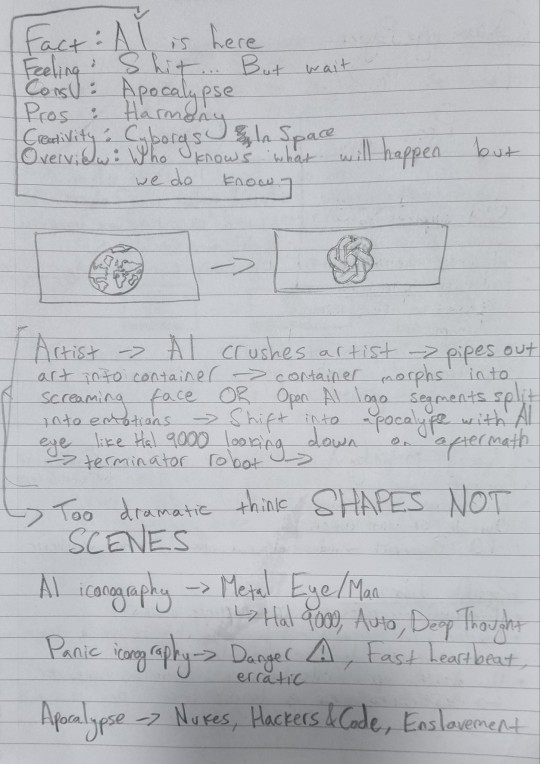 Fact: AI is here
Feeling: Shit... But wait
Cons: Apocalypse
Pros: Harmony
Creativity: Cyborgs In Space
Overview: Who knows what will happen but
we do know
Artist → AI crushes artist → pipes out
art into container → container morphs into
screaming face OR Open AI logo segments split
into emotions → Shift into apocalypse with AI
eye like Hal 9000 looking down on aftermath
→ terminator robot →
→ Too dramatic think SHAPES NOT
SCENES
AI iconography → Metal Eye/Man
↳ Hal 9000, Auto, Deep Thought
Panic iconography → Danger ⚠, Fast heartbeat,
erratic
Apocalypse → Nukes, Hackers & Code, Enslavement